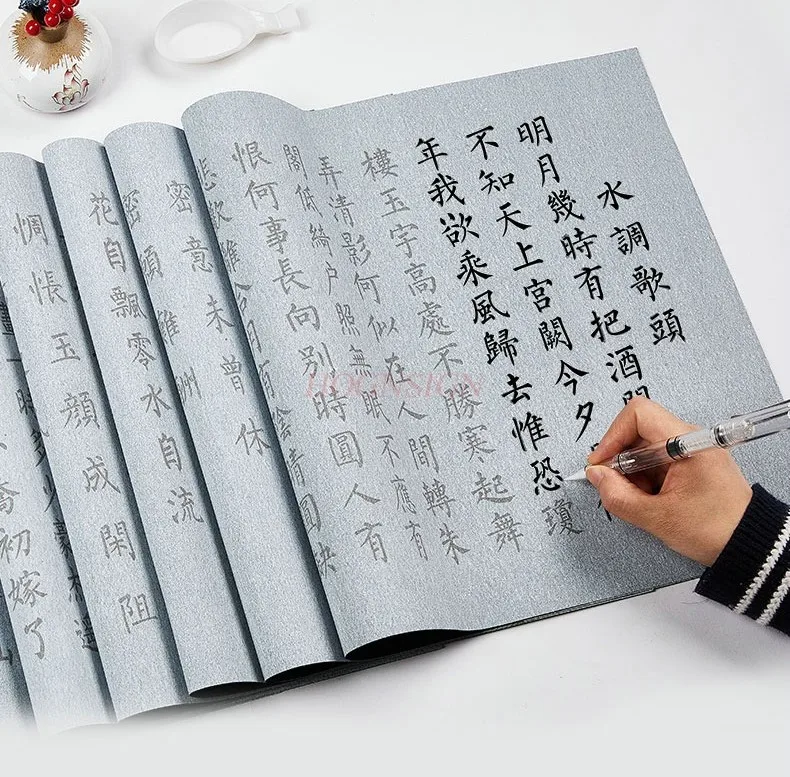 水調歌頭
明月幾時有把酒問
不知天上宮闕今夕
年我欲乘風歸去惟恐瓊
樓玉宇高處不勝寒起舞
弄清影何似在人間轉朱
閣低綺户照無眠不應有
恨何事長向别時圓人有
有陰晴圓缺
密意未曾休
花自飄零水自流
惆悵玉顔成閑阻
喬初嫁了
HOGNSIGN